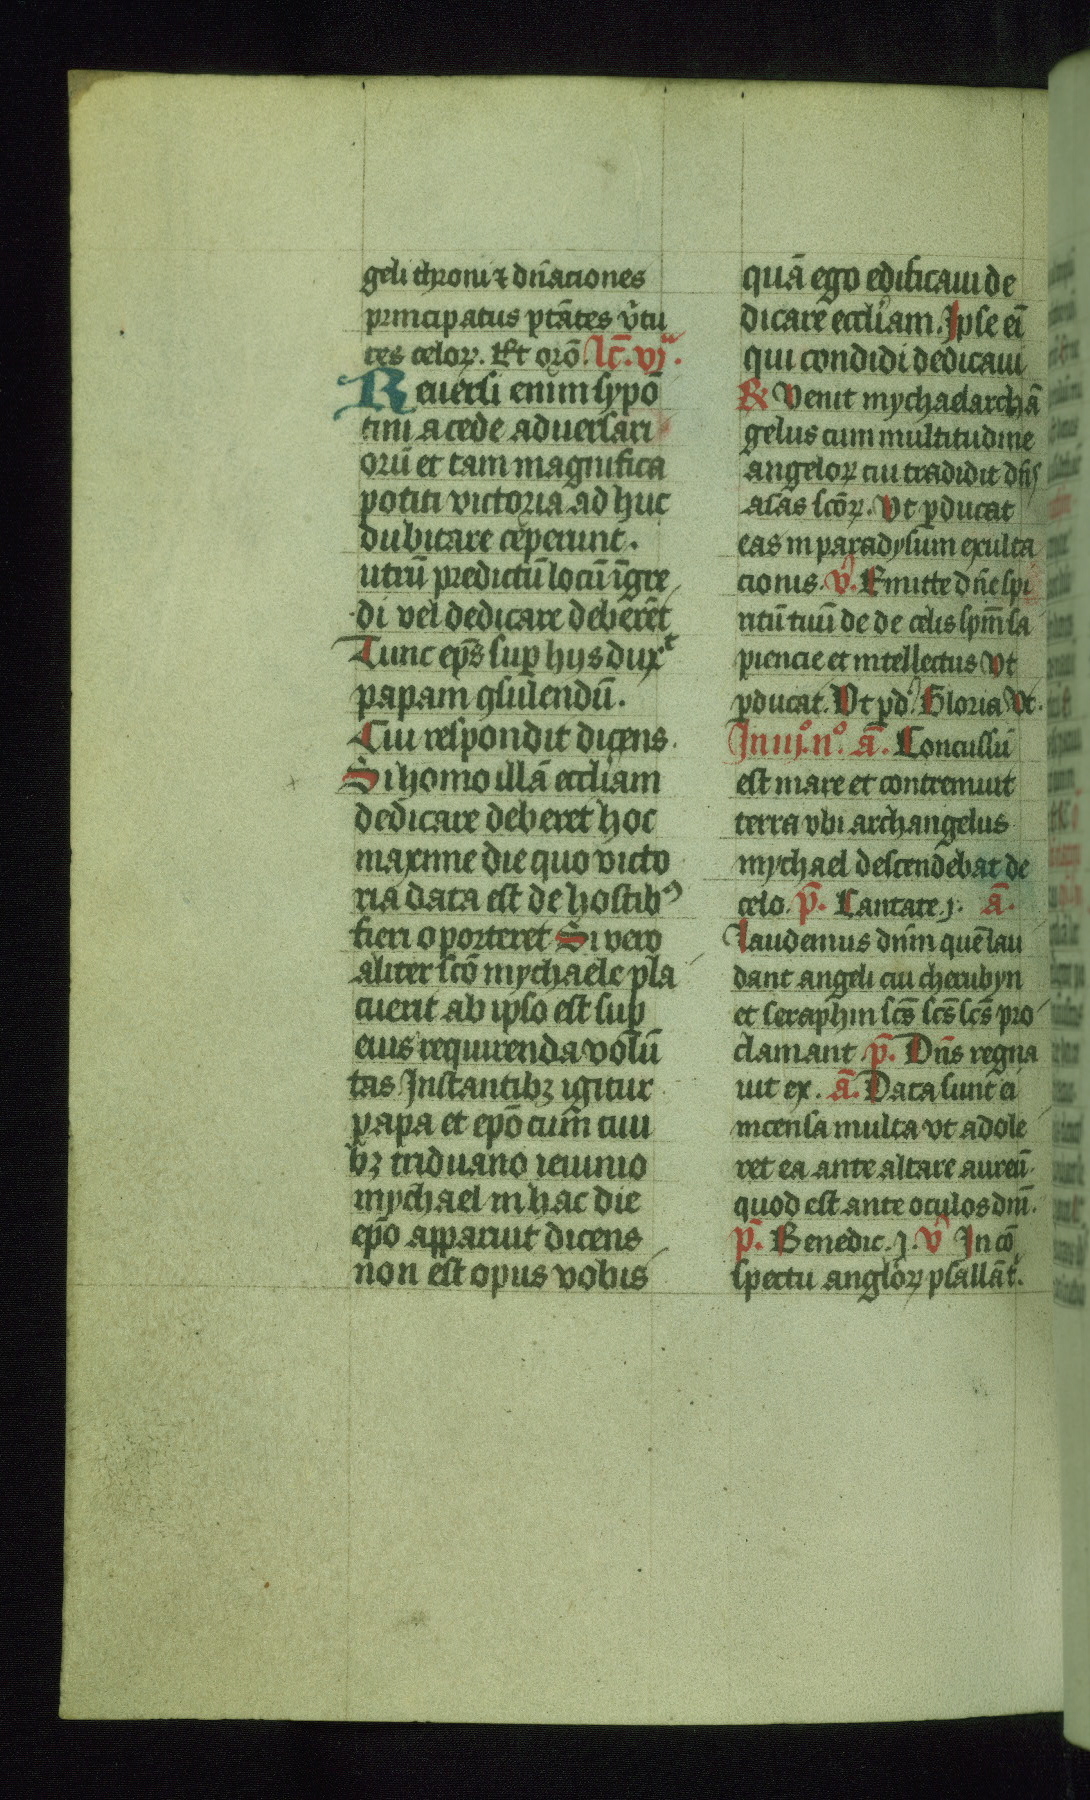 geli throni ⁊ dn̄aciones
principatus ptātes v̄tu
tes celoꝝ. Et orō. lc̄. vj.ª
Reuersi enim sypō
tini a cede aduersari
orū et tam magnifica
potiti victoria ad huc
dubitare ceperunt.
utrū predictū locū īgre
di vel dedicare deberēt
Tunc ep̄s suꝑ hys dux͛t
papam ꝯsulendū.
Cui respondit dicens.
Si homo illā eccliam
dedicare deberet hoc
maxime die quo victo
ria data est de hostibꝰ
fieri oporteret Si vero
aliter scō mychaele pla
cuerit ab ipso est suꝑ
eius requirenda volū
tas Instantibꝫ igitur
papa et epō cum ciui
bꝫ triduano ieiunio
mychael in hac die
epō apparuit dicens
non est opus vobis
quā ego edificaui de
dicare eccliam. Ipse ei̅
qui condidi dedicaui
℟ Venit mychael archā
gelus cum multitudine
angeloꝝ cui tradidit dn̄s
aīas scōꝝ. Vt ꝑducat
eas in paradysum exulta
cionis. v̓. Emitte dn̄e spi
ritū tuū de de celis spm̄ sa
piencie et intellectus Vt
ꝑducat. Vt ꝑd. Gloria Vt.
In iij.º n.º a̅. Concussū
est mare et contremuit
terra vbi archangelus
mychael descendebat de
celo. p̅. Cantate. j. a̅.
Laudemus dn̄m quē lau
dant angeli cui cherubyn
et seraphin sc̄s sc̄s sc̄s pro
clamant p̅. Dn̄s regna
uit ex. a̅. Data sunt ei
incensa multa vt adole
ret ea ante altare aureū
quod est ante oculos dn̄i.
p̅. Benedic. j. v̓ In cō
spectu angloꝝ psallāt.